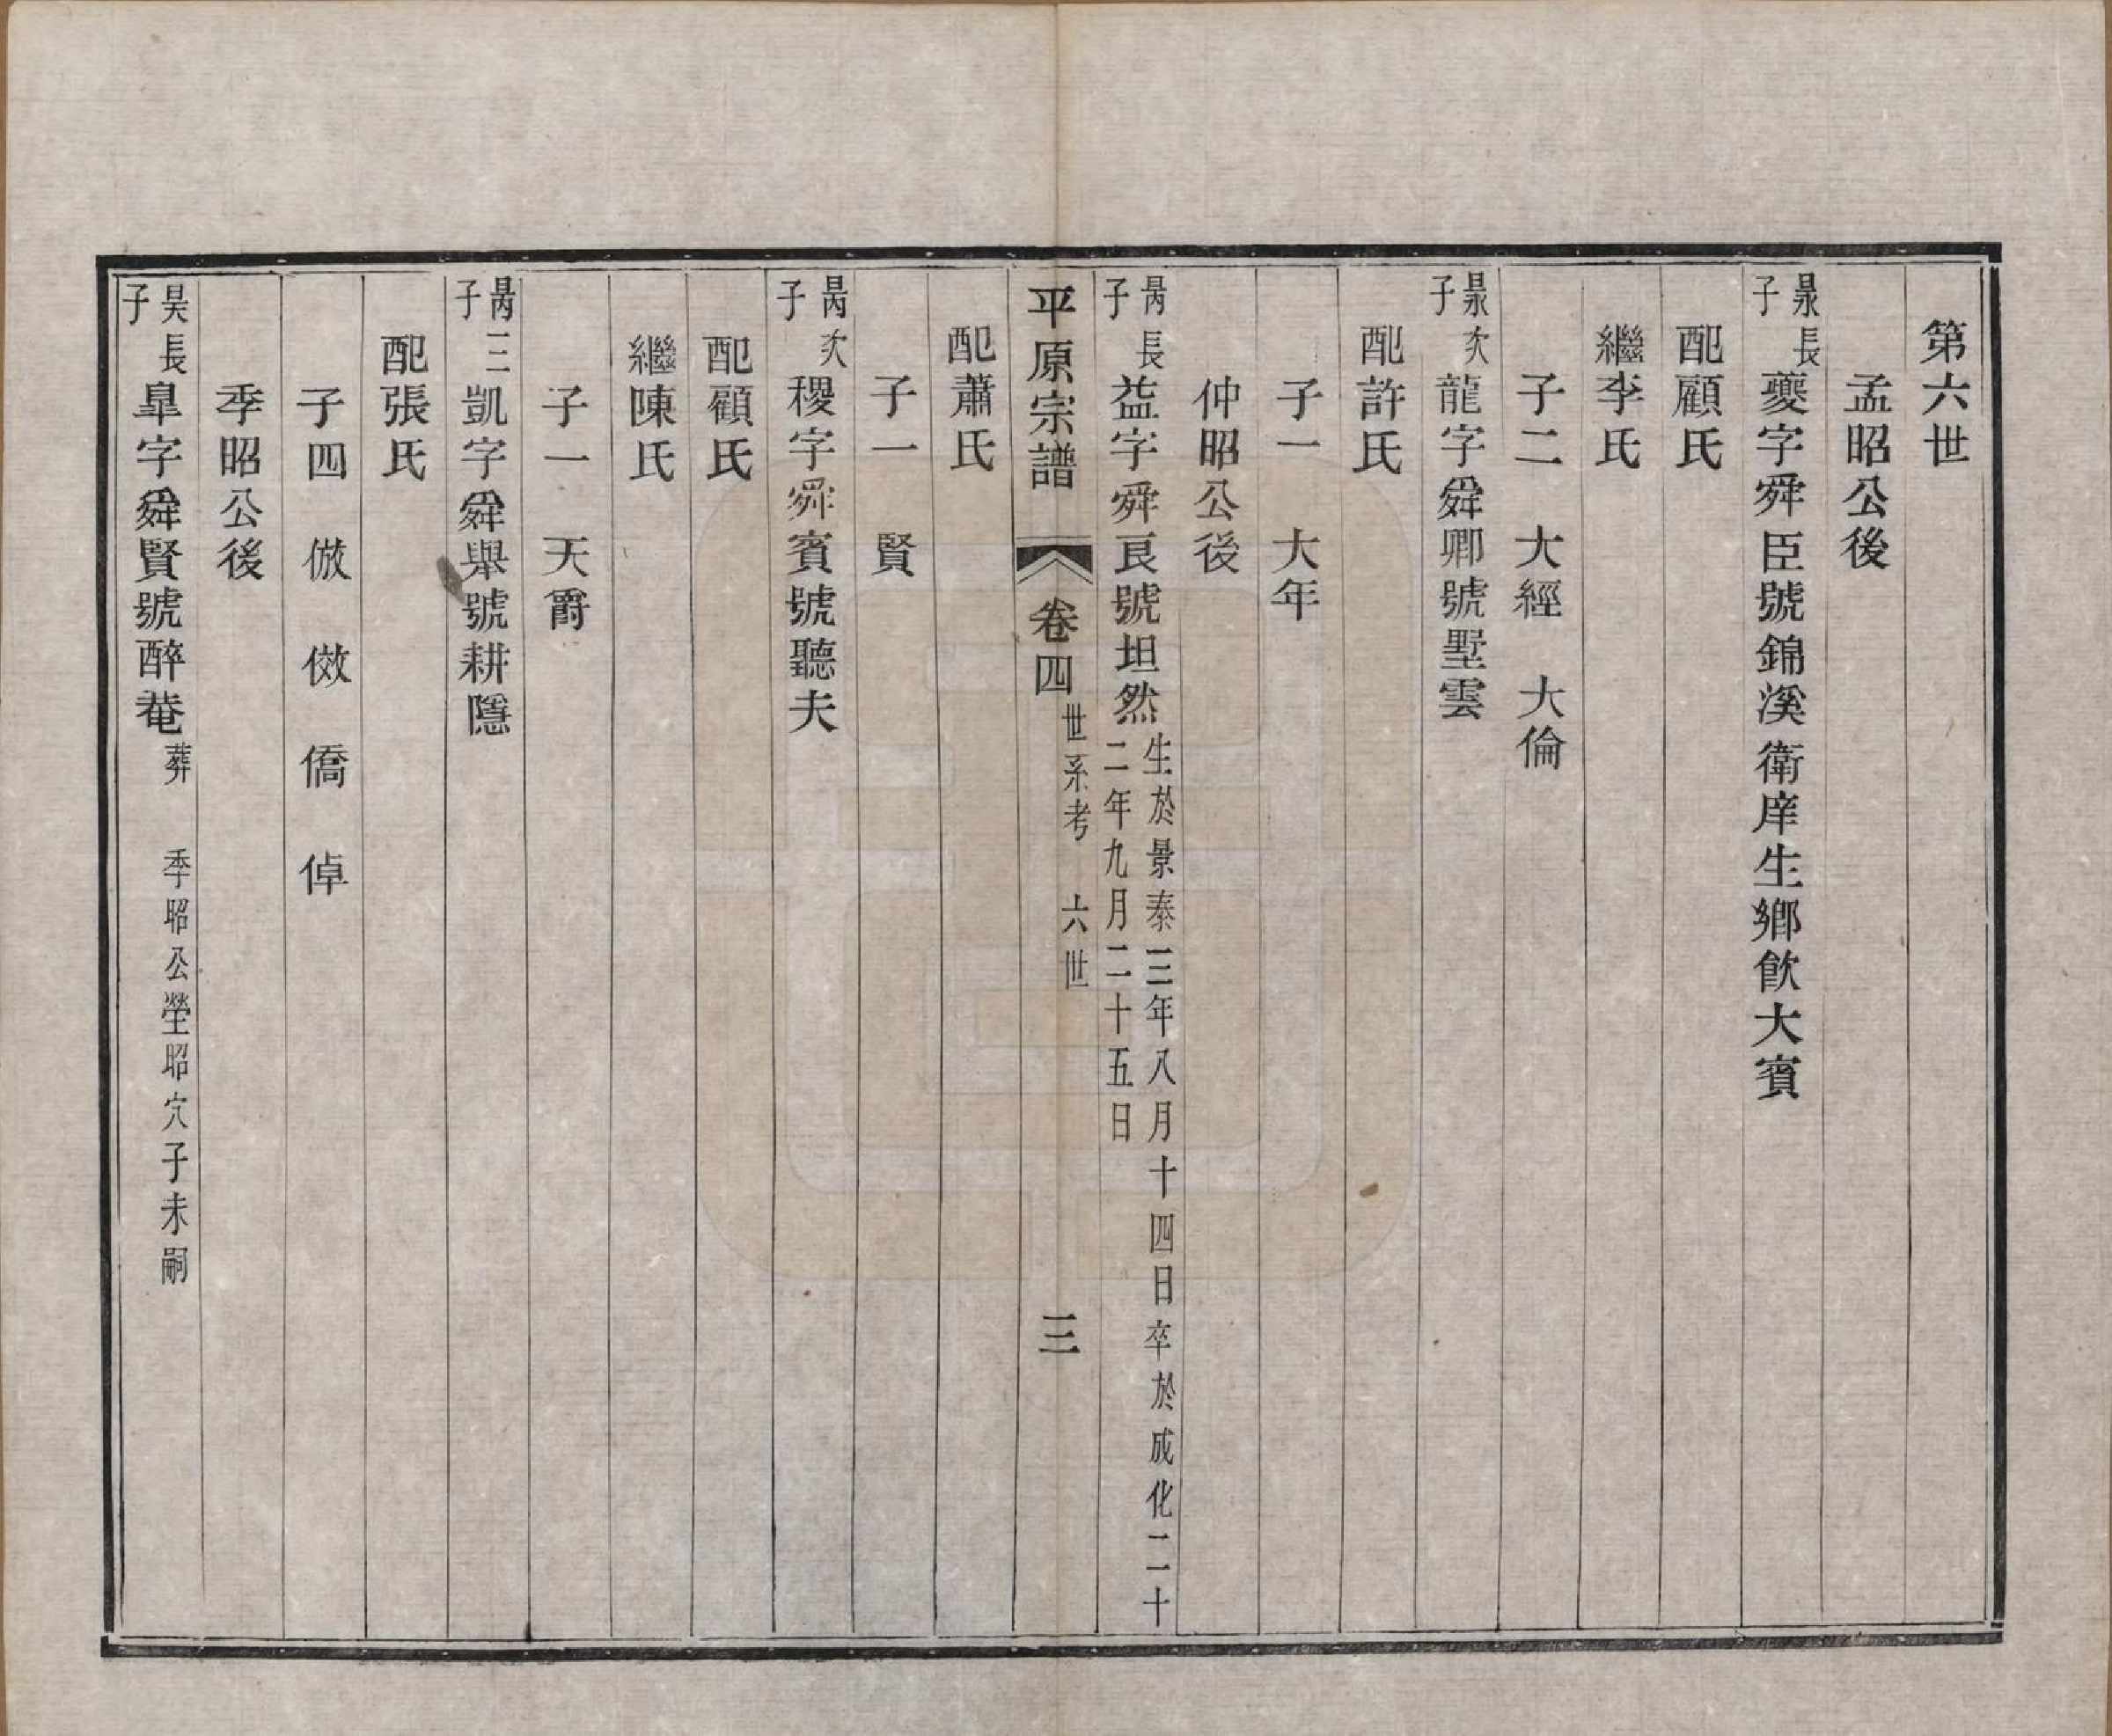 第六世
孟昭公後
㫤長子 夔字舜臣號錦溪衛庠生鄉飲大賓
配顧氏
繼李氏
子二 大經 大倫
㫤次子 龍字舜卿號墅雲
配許氏
子一 大年
仲昭公後
昺長子 益字舜良號坦然 生於景泰三年八月十四日卒於成化二十
二年九月二十五日
平原宗譜 卷四 世系考 六世 三
配蕭氏
子一 賢
昺次子 稷字舜賓號聽夫
配顧氏
繼陳氏
子一 天爵
昺三子 凱字舜舉號耕隱
配張氏
子四 倣 傚 僑 倬
季昭公後
昊長子 皐字舜賢號醉菴 葬 季昭公塋昭穴子未嗣